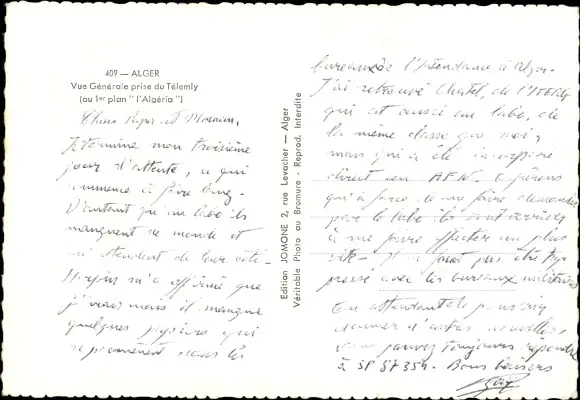 409 — ALGER
Vue Générale prise du Télemly
(au 1er plan "l'Algéria")
Chers Papa et Maman,
Je termine mon troisième
jour d'attente, ce qui
commence à faire long.
D'autant qu'au labo ils
manquent de monde et
m'attendent de leur côté.
m'a affirmé que
j'irais mais il manque
quelques papiers qui
se promènent dans les
Edition JOMONE 2, rue Levacher — Alger
Véritable Photo au Bromure - Reprod. Interdite
bureaux de l'Intendance à Alger.
J'ai retrouvé Chatel, de
qui est aussi au labo, de
la même classe que moi,
mais qui a été incorporé
direct en AFN. Espérons
qu'à force de me faire demander
par le labo ils vont arriver
à me faire affecter au plus
vite. Il ne faut pas être trop
pressé avec les bureaux militaires
En attendant de pouvoir
donner d'autres nouvelles,
vous pouvez toujours répondre
à SP 87354. Bons baisers